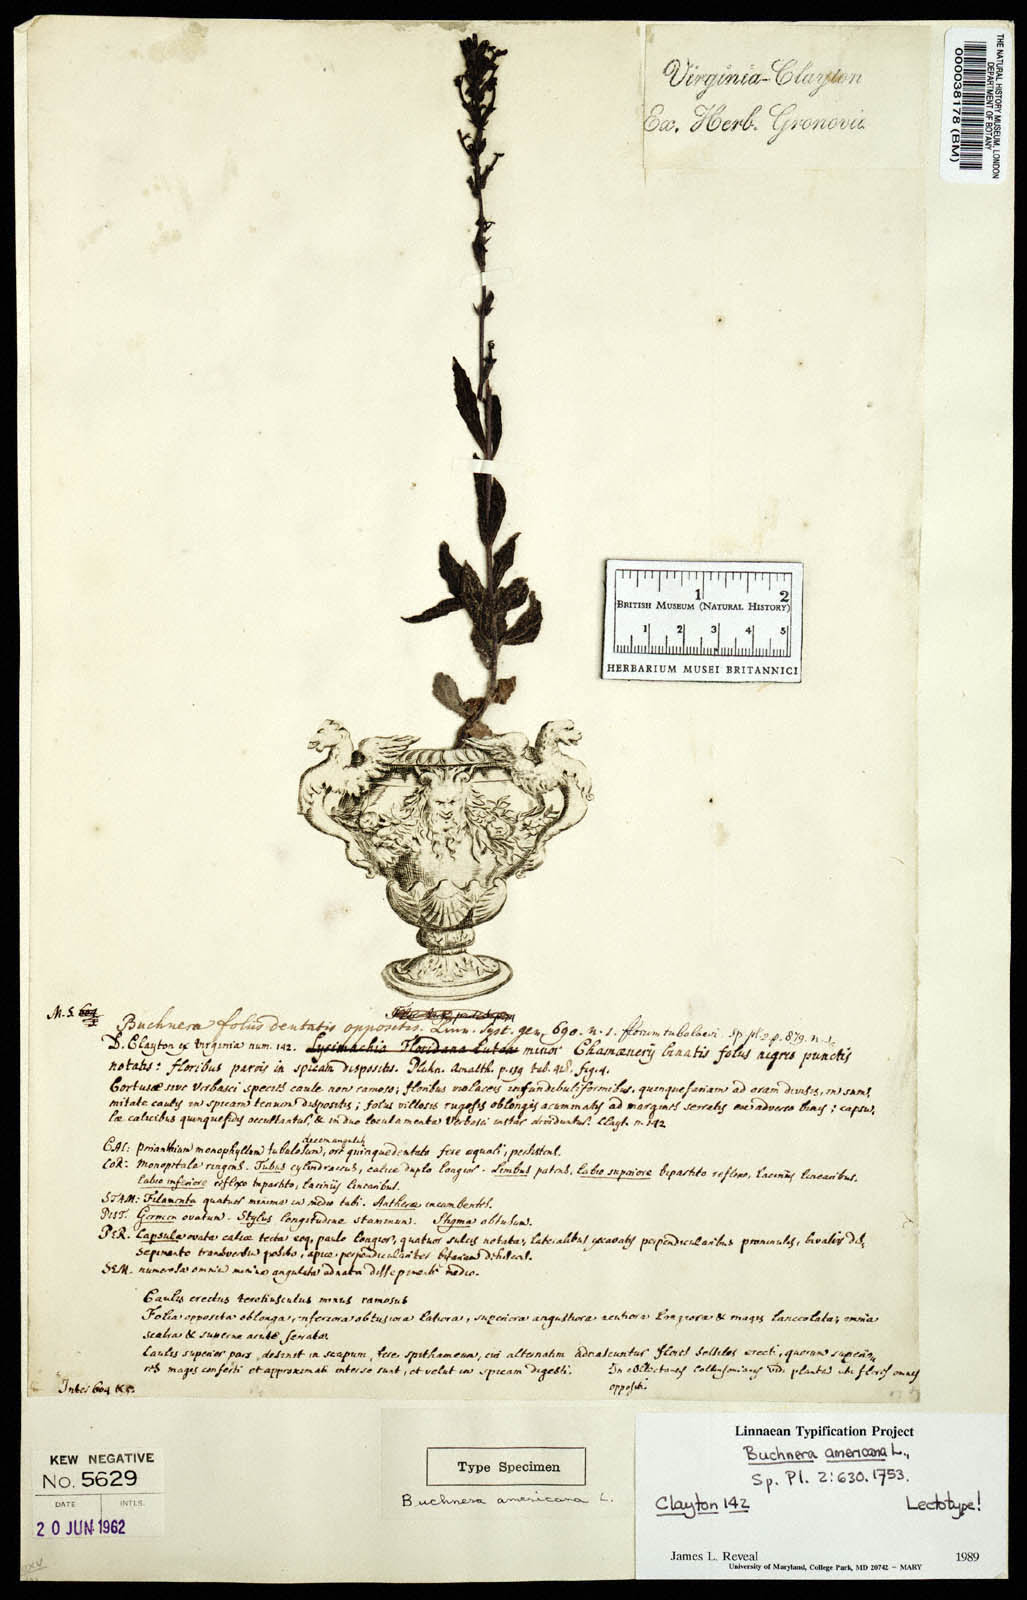 Virginia-Clayton
Ex. Herb. Gronovii.
THE NATURAL HISTORY MUSEUM, LONDON
DEPARTMENT OF BOTANY
000038178 (BM)
1 2
BRITISH MUSEUM (NATURAL HISTORY)
1 2 3 4 5
HERBARIUM MUSEI BRITANNICI
Buchnera foliis dentatis oppositis. Linn. Syst. gen. 690. n. 1.
D. Clayton ex Virginia num. 142. Lysimachia Floridana lutea minor Chamænerij binatis foliis nigris punctis
notatis: floribus parvis in spicam dispositis. Plukn. Amalth. p. 139 tab. 42. fig. 4.
caule non ramoso; floribus violaceis infundibuliformibus, quinquefariam ad oram divisis, in sum,
mitate caulis in spicam tenuem dispositis; foliis villosis rugosis oblongis acuminatis ad margines serratis ex adverso binis: capsu,
læ calicibus quinquefidis occultantur, & in duo loculamenta Verbasci instar dividuntur. Clayt. n. 142
CAL: perianthium monophyllum tubulosum, ore quinquedentato fere equali, persistens.
COR: Monopetala ringens. Tubus cylindraceus, calice duplo longior. Limbus patens, labio superiore bipartito reflexo, laciniis linearibus.
labio inferiore reflexo tripartito, laciniis linearibus.
STAM: Filamenta quatuor minima in medio tubi. Antheræ incumbentes.
PIST. Germen ovatum. Stylus longitudine staminum. Stigma obtusum.
PER. Capsula ovata calice tecta eoq; paulo longior, quatuor sulcis notata,
SEM. numerosa omnia minima angulata
Caulis erectus teretiusculus minus ramosus
Folia opposita oblonga, inferiora obtusiora latiora, superiora angustiora acutiora longiora & magis lanceolata; omnia
scabra & superne acute serrata.
Caulis superior pars, desinit in scapum, fere spithameum, cui alternatim adnascuntur flores sessiles erecti, quorum superio,
res magis conferti et approximati inter se sunt, et velut in spicam digesti.
oppositi.
KEW NEGATIVE
No. 5629
DATE INTLS.
20 JUN 1962
Type Specimen
Buchnera americana L.
Linnaean Typification Project
Buchnera americana L.,
Sp. Pl. 2: 630. 1753.
Clayton 142 Lectotype!
James L. Reveal 1989
University of Maryland, College Park, MD 20742 – MARY